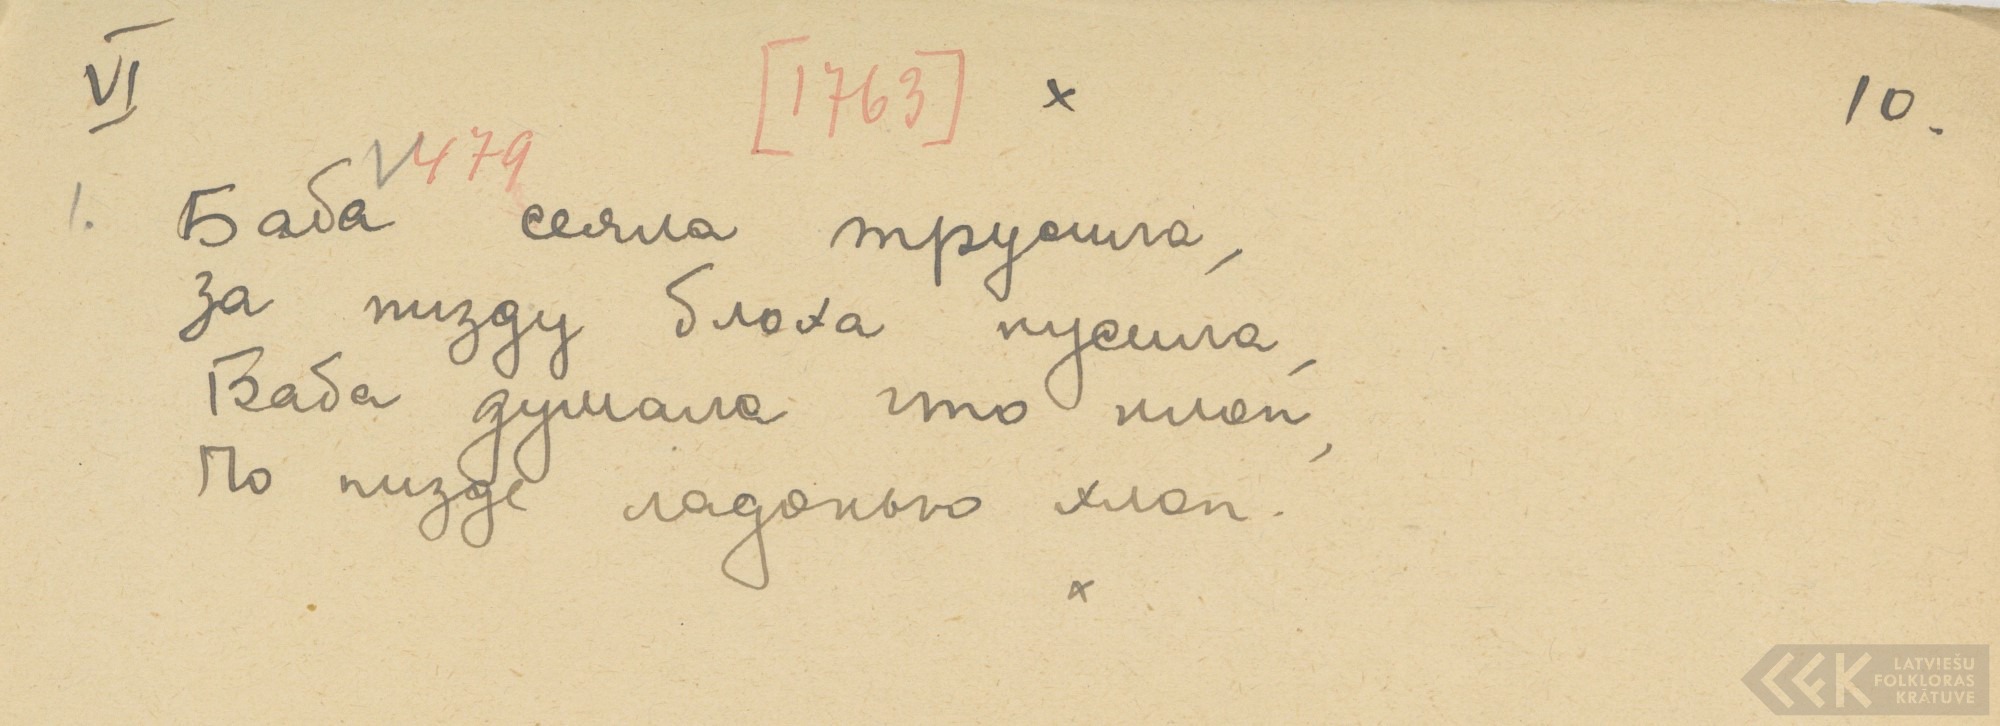 VI [1763] x 10.
V479
1. Баба сеяла трусила,
За пизду блоха кусила,
Баба думала что клоп,
По пизде ладонью хлоп.
x
LATVIEŠU
FOLKLORAS
KRĀTUVE